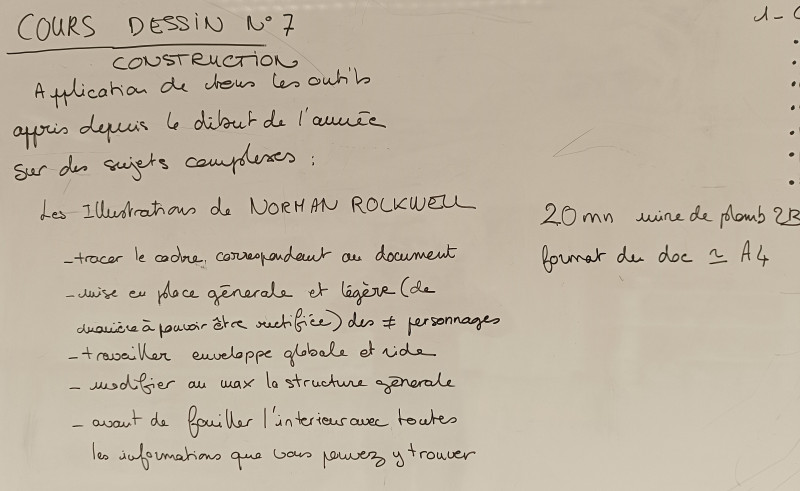 COURS DESSIN N° 7
CONSTRUCTION
Application de tous les outils
appris depuis le début de l'année
sur des sujets complexes :
Les Illustrations de NORMAN ROCKWELL
- tracer le cadre, correspondant au document
- mise en place générale et légère (de
manière à pouvoir être rectifiée) des ≠ personnages
- travailler enveloppe globale et vide
- modifier au max la structure générale
- avant de fouiller l'interieur avec toutes
les informations que vous pouvez y trouver
20 mn mine de plomb 2B
format du doc ≃ A4
1 - C